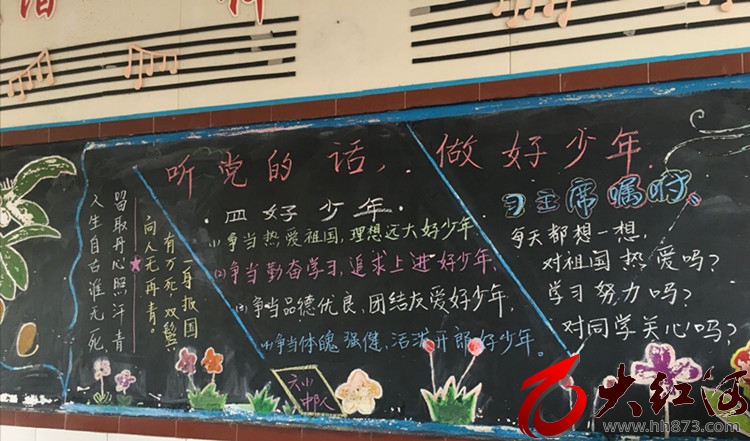 听党的话,做好少年
人生自古谁无死
留取丹心照汗青
一身报国
有万死,双鬓
向人无再青。
四好少年
(1)争当热爱祖国,理想远大好少年,
(2)争当勤奋学习,追求上进好少年,
(3)争当品德优良,团结友爱好少年,
(4)争当体魄强健,活泼开朗好少年。
习主席嘱咐
每天都想一想,
对祖国热爱吗?
学习努力吗?
对同学关心吗?
大红河
www.hh873.com